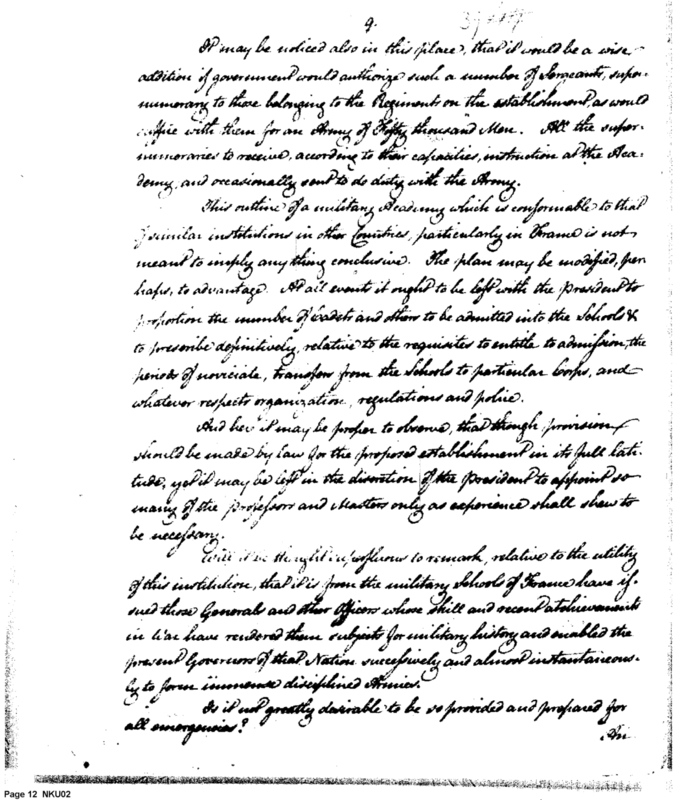 9.
It may be noticed also in this place, that it would be a wise
addition if government would authorize such a number of Sergeants, super-
numerary to those belonging to the Regiment on the establishment, as would
suffice with them for an Army of Fifty thousand Men. All the super-
numeraries to receive, according to their capacities, instruction at the Aca-
demy, and occasionally sent to do duty with the Army.
This outline of a military Academy which is conformable to that
of similar institutions in other Countries, particularly in France is not
meant to imply any thing conclusive. The plan may be modified, per
haps, to advantage. At all events it ought to be left with the President to
proportion the number of Cadets and others to be admitted into the Schools &
to prescribe definitively, relative to the requisites to entitle to admission, the
periods of noviciate, transfers from the Schools to particular Corps, and
whatever respects organization, regulations and police.
And here it may be proper to observe, that though, provision
should be made by law for the proposed establishment in its full lati-
tude, yet it may be left in the discretion of the President to appoint so
many of the professors and Masters only as experience shall shew to
be necessary.
Will it be thought superfluous to remark, relative to the utility
of this institution, that it is from the military Schools of France have is-
sued those Generals and other Officers whose skill and recent atchievements
in war have rendered them subjects for military history and enabled the
present Governors of that Nation successively and almost instantaneous-
ly to form immense disciplined Armies.
Is it not greatly desirable to be so provided and prepared for
all emergencies?
An
Page 12 NKU02